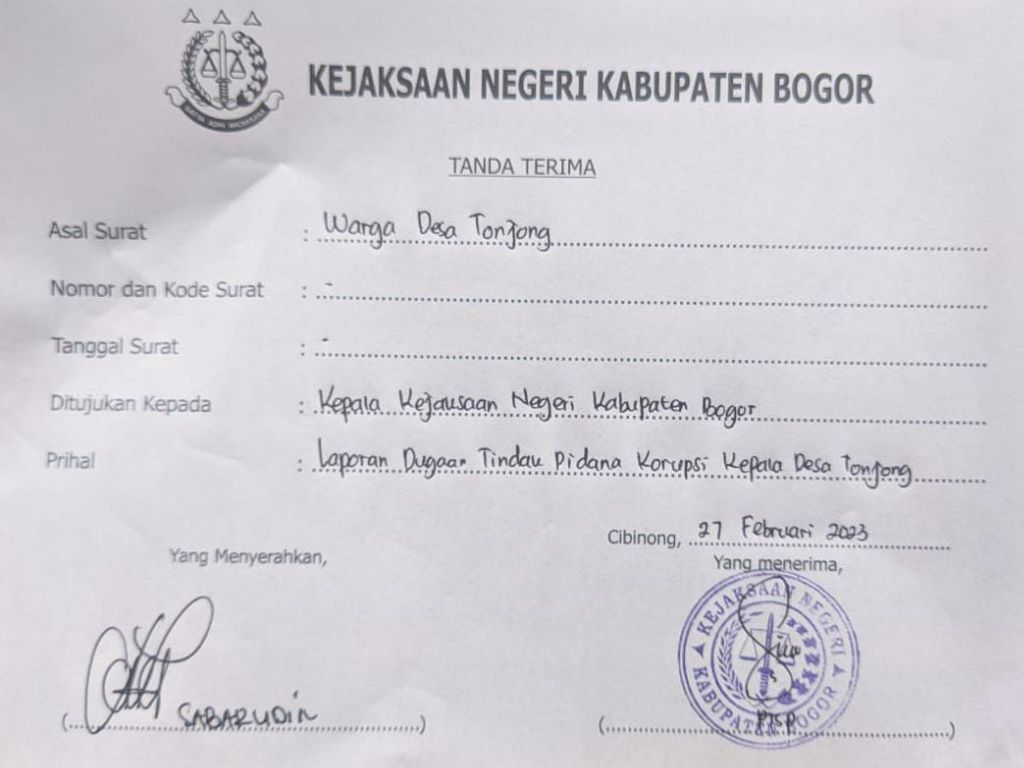 KEJAKSAAN NEGERI KABUPATEN BOGOR
TANDA TERIMA
Asal Surat : Warga Desa Tonjong
Nomor dan Kode Surat : -
Tanggal Surat : -
Ditujukan Kepada : Kepala Kejaksaan Negeri Kabupaten Bogor
Prihal : Laporan Dugaan Tindak Pidana Korupsi Kepala Desa Tonjong
Cibinong, 27 Februari 2023
Yang Menyerahkan, Yang menerima,
KEJAKSAAN NEGERI
KABUPATEN BOGOR
(SABARUDIN) (PTSP)